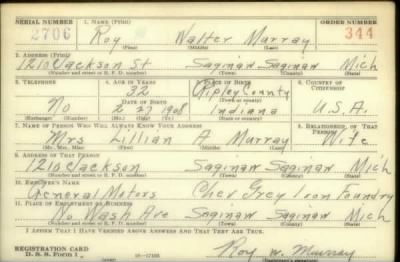 SERIAL NUMBER 1. NAME (Print) ORDER NUMBER
2706 Roy Walter Murray 344
(First) (Middle) (Last)
2. ADDRESS (Print)
1210 Jackson St Saginaw Saginaw Mich
(Number and street or R. F. D. number) (Town) (County) (State)
3. TELEPHONE 4. AGE IN YEARS 5. PLACE OF BIRTH 6. COUNTRY OF CITIZENSHIP
32 Ripley County
DATE OF BIRTH (Town or county)
No 2 27 1908 Indiana U.S.A.
(Exchange) (Number) (Mo.) (Day) (Yr.) (State or country)
7. NAME OF PERSON WHO WILL ALWAYS KNOW YOUR ADDRESS 8. RELATIONSHIP OF THAT PERSON
Mrs Lillian A Murray Wife
(Mr., Mrs., Miss) (First) (Middle) (Last)
9. ADDRESS OF THAT PERSON
1210 Jackson Saginaw Saginaw Mich
(Number and street or R. F. D. number) (Town) (County) (State)
10. EMPLOYER'S NAME
General Motors Chev Grey Iron Foundry
11. PLACE OF EMPLOYMENT OR BUSINESS
No Wash Ave Saginaw Saginaw Mich
(Number and street or R. F. D. number) (Town) (County) (State)
I AFFIRM THAT I HAVE VERIFIED ABOVE ANSWERS AND THAT THEY ARE TRUE.
REGISTRATION CARD
D. S. S. Form 1 Roy W. Murray
(Registrant's signature)